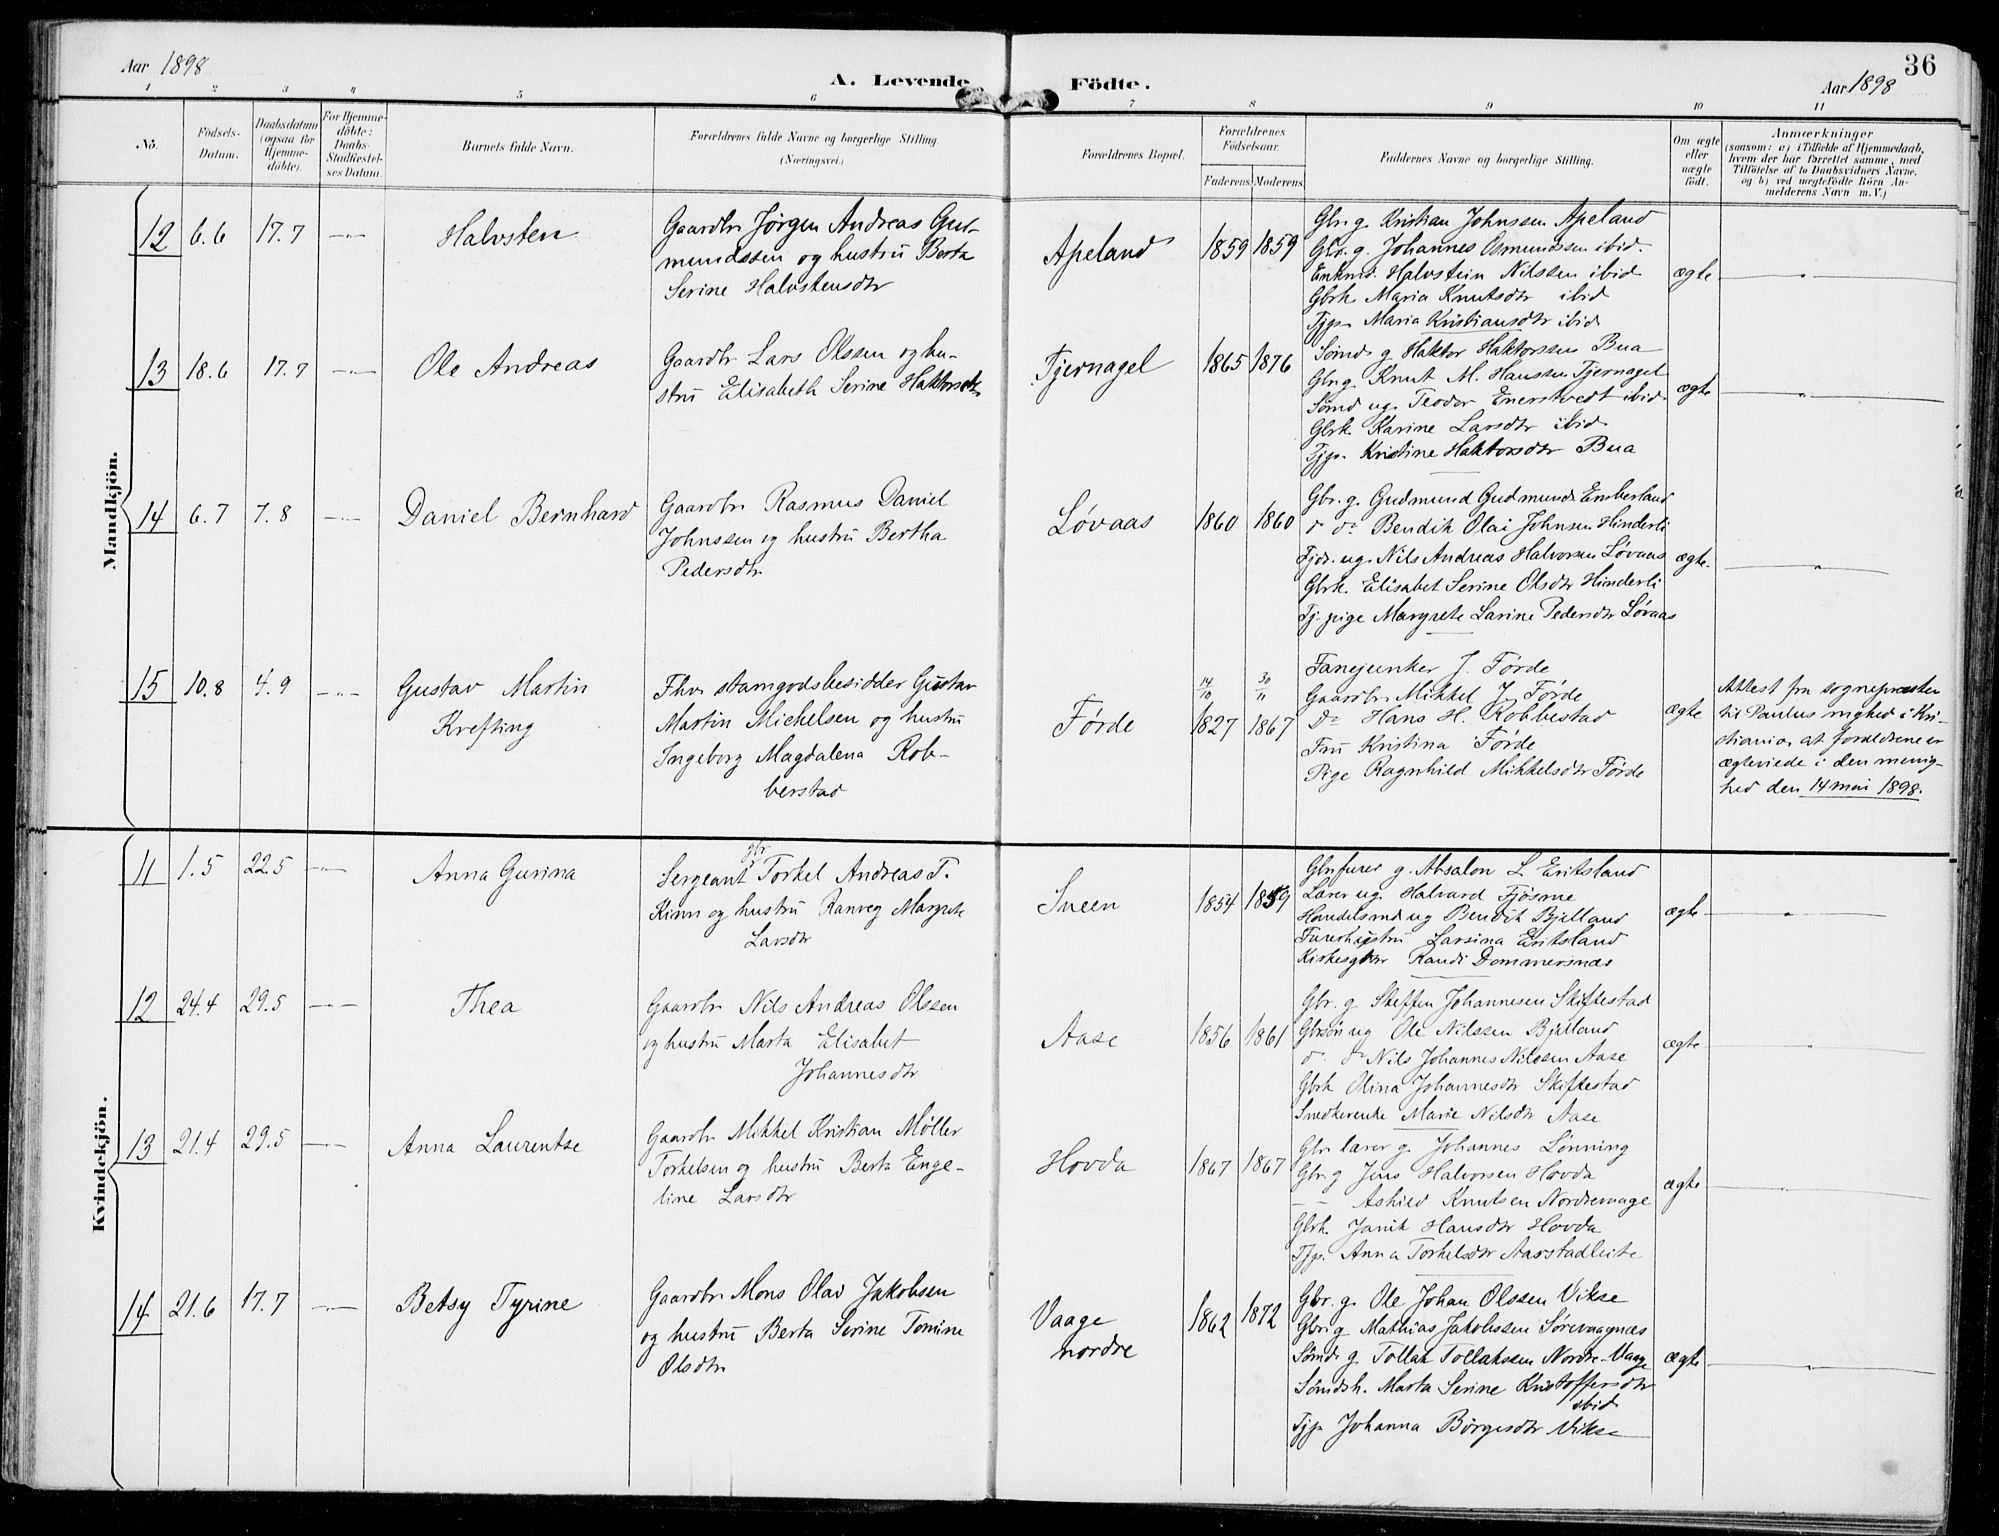 Aar 1898
A. Levende Födte.
36
Aar 1898
1 2 3 4 5 6 7 8 9 10 11
No.
Födsels-Datum.
Daabsdatum (ogsaa for Hjemme-döbte).
For Hjemme-döbte: Daabs-Stadfæstel-ses Datum.
Barnets fulde Navn.
Forældrenes fulde Navne og borgerlige Stilling. (Næringsvei.)
Forældrenes Bopæl.
Forældrenes Födselsaar.
Faderens. Moderens.
Faddernes Navne og borgerlige Stilling.
Om ægte eller uægte födt.
Anmærkninger
(saasom: a) i Tilfælde af Hjemmedaab,
hvem der har forrettet samme, med
Tilföielse af to Daabsvidners Navne,
og b) ved uægtefödte Börn An-
melderens Navn m. V.)
Mandkjön.
12 6.6 17.7 Halvsten
Gaardbr Jørgen Andreas Gut-
mundssen og hustru Berta
Serine Halvstensdtr
Apeland 1859 1859
Gbr g. Kristian Johnssen Apeland
Gbr. g. Johannes Osmundssen ibid.
Enkmd Halvstein Nilssen ibid
Gbrk. Maria Knutsdtr ibid
Tjp. Maria Kristiansdtr ibid
ægte
13 18.6 17.7 Ole Andreas
Gaardbr Lars Olssen og hu-
stru Elisabeth Serine Haktorsdtr
Tjernagel 1865 1876
Sømd g Haktor Haktorssen Bua
Gbr g Knut M. Hanssen Tjernagel
Sømd ug. Teodor Enerstvedt ibid
Gbrk. Karine Larsdtr ibid
Tjp. Kristine Haktorsdtr Bua
ægte
14 6.7 7.8 Daniel Bernhard
Gaardbr Rasmus Daniel
Johnssen og hustru Bertha
Pedersdtr
Løvaas 1860 1860
Gbr. g. Gudmund Gudmunds Emberland
d. do Bendik Olai Johnsen Hinderli
Tjdr. ug. Nils Andreas Halvorsen Løvaas
Gbrk. Elisabet Serine Olsdtr Hinderli
Tj. pige Margrete Larine Pedersdtr Løvaas
ægte.
15 10.8 4.9 Gustav Martin
Krefting
Fhv. stamgodsbesidder Gustav
Martin Michelsen og hustru
Ingeborg Magdalena Rob-
berstad
Førde
14/10 1827 30/11 1867
Fanejunker J. Førde
Gaardbr Mikkel J. Førde
Do Hans H. Robbestad
Fru Kristina Førde
Pige Ragnhild Mikkelsdtr Førde
ægte
Attest fra sognepræsten
til Paulus mighed i Kri-
stiania, at forældrene er
ægteviede i den menig-
hed den 14 mai 1898.
Kvindekjön.
11 1.5 22.5 Anna Gurina
Sergeant gbr Torkel Andreas T.
Kinn og hustru Ranveg Margrete
Larsdtr
Sneen 1854 1859
Gbrfurer g. Absalon L Eritsland
Lærer ug. Halvard Tjøsme
Handelsmd ug Bendik Bjelland
Furerhustru Larsina Eritsland
Randi Dommersnæs
ægte
12 24.4 29.5 Thea
Gaardbr Nils Andreas Olssen
og hustru Marta Elisabet
Johannesdtr
Aase 1856 1861
Gbr. g Steffen Johannesen Skiftestad
Gbrsøn ug Ole Nilssen Bjelland
d. do Nils Johannes Nilssen Aase
Gbrk Olina Johannesdtr Skiftestad
Snedkerenke Marie Nilsdtr Aase
ægte
13 21.4 29.5 Anna Laurentse
Gaardbr Mikkel Kristian Møller
Torkelsen og hustru Berta Enge-
line Larsdtr
Hovda 1867 1867
Gbr lærer g. Johannes Lønning
Gbr g Jens Halvorsen Hovda
— Askild Knutsen Nordrevaage
Gbrk. Janik Hansdtr Hovda
Tjp. Anna Torkelsdtr Aarstadleite
ægte
14 21.6 17.7 Betsy Tyrine
Gaardbr Mons Olav Jakobsen
og hustru Berta Serine Tomine
Olsdtr
Vaage
nordre
1862 1872
Gbr. g. Ole Johan Olssen Vikse
Gbr g Mathias Jakobssen Sørevaagnæs
Sømd g. Tollak Tollakssen Nordre-Vaage
Sømdsh. Marta Serine Kristoffersdtr
ibid
Tjp Johanna Børgesdtr Vikse
ægte